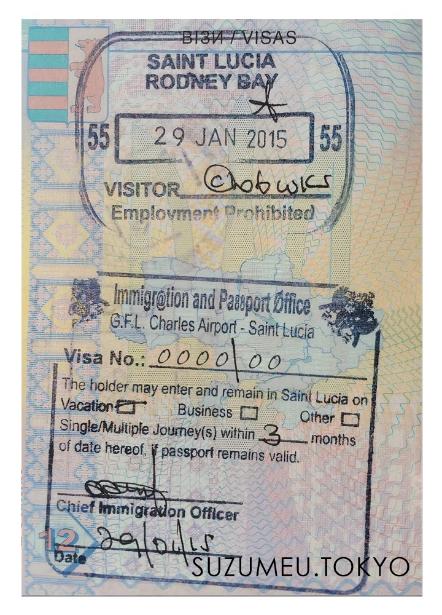 ВІЗИ / VISAS
SAINT LUCIA
RODNEY BAY
55 29 JAN 2015 55
VISITOR
Employment Prohibited
Immigration and Passport Office
G.F.L. Charles Airport - Saint Lucia
Visa No.: 0000/00
The holder may enter and remain in Saint Lucia on
Vacation Business Other
Single/Multiple Journey(s) within 3 months
of date hereof, if passport remains valid.
Chief Immigration Officer
12
Date 29/01/15
SUZUMEU.TOKYO